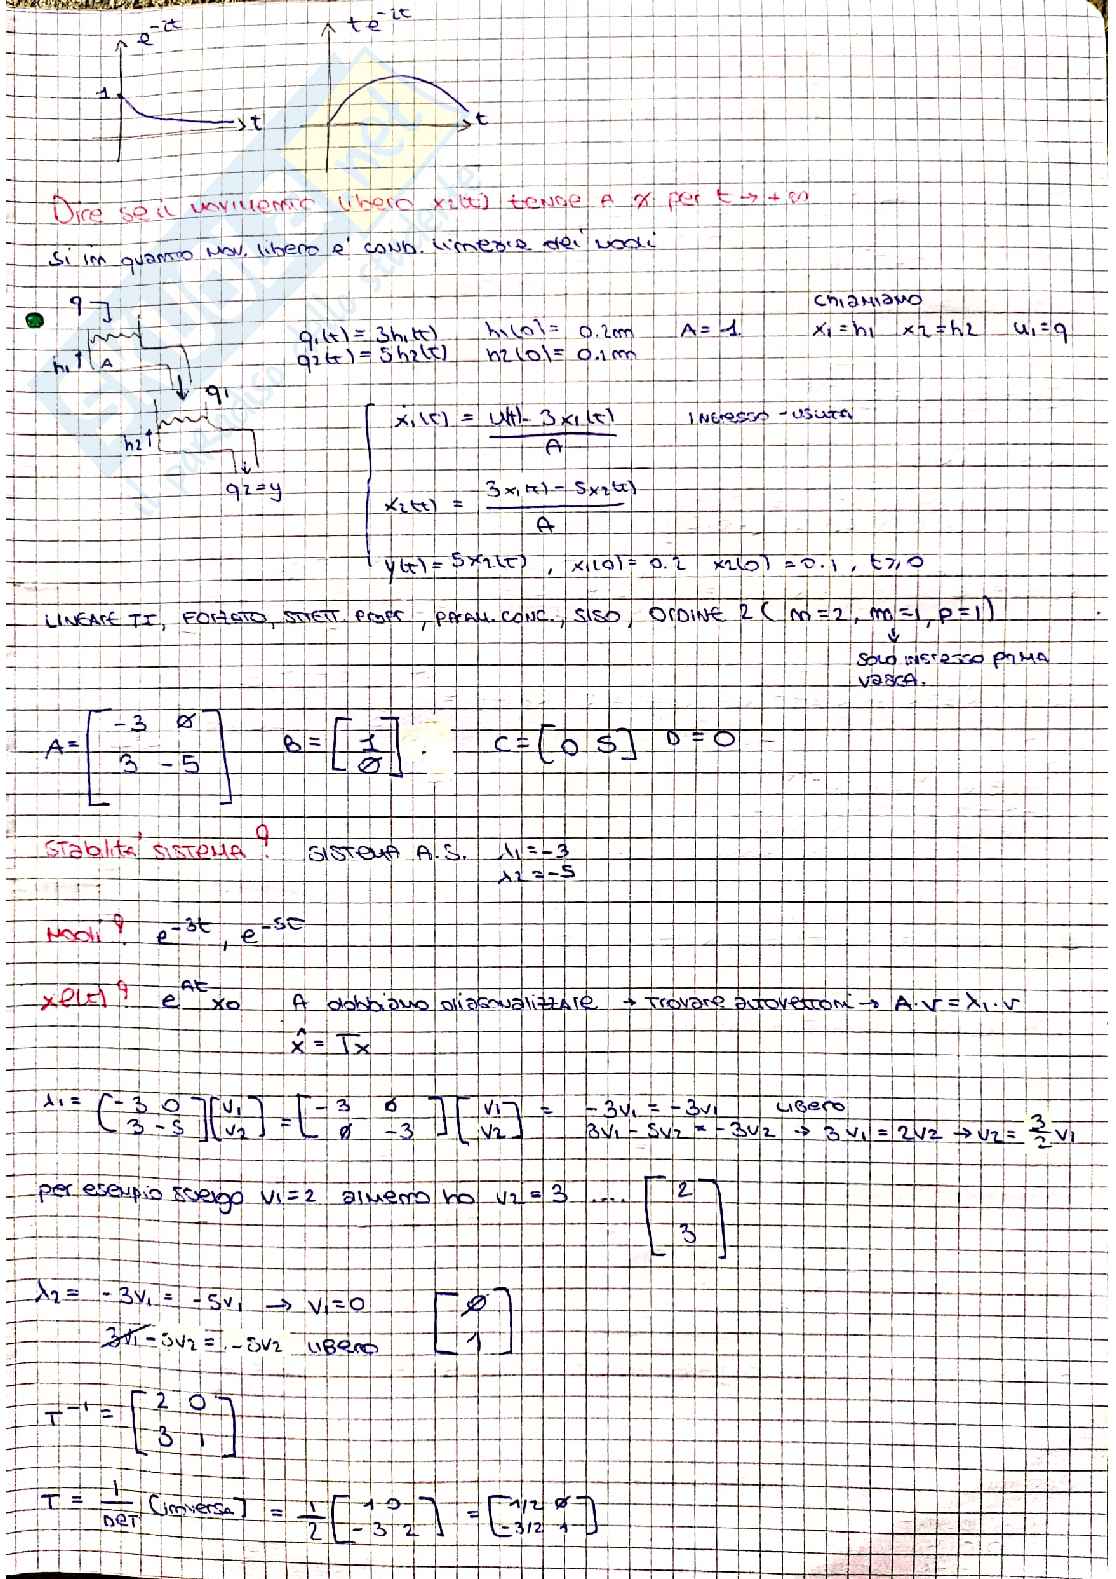 e^-2t
t e^-2t
1
t
t
Dire se il movimento libero x2(t) tende a 0 per t → +∞
Si in quanto mov. libero e' comb. lineare dei modi
q
h1 A
q1
h2
q2=y
chiamiamo
q1(t) = 3h1(t) h1(0) = 0.2m A = 1 x1=h1 x2=h2 u1=q
q2(t) = 5h2(t) h2(0) = 0.1m
ẋ1(t) = u(t) - 3x1(t) / A INGRESSO - USCITA
x2(t) = 3x1(t) - 5x2(t) / A
y(t) = 5x2(t) , x1(0) = 0.2 x2(0) = 0.1 , t≥0
LINEARE TI, FORZATO, STRETT. PROPR , PARAM. CONC., SISO, ORDINE 2 ( m=2, m=1, p=1)
SOLO INGRESSO PRIMA
VASCA.
A = [-3 0
3 -5]
B = [1
0]
C = [0 5] D = 0
Stabilita' SISTEMA? SISTEMA A.S. λ1 = -3
λ2 = -5
Modi? e^-3t , e^-5t
xe(t)? e^At x0 A dobbiamo diagonalizzare → trovare autovettori → A·v = λ1·v
x̂ = Tx
λ1 = [-3 0
3 -5] [v1
v2] = [-3 0
0 -3] [v1
v2] = -3v1 = -3v1 LIBERO
3v1 - 5v2 = -3v2 → 3v1 = 2v2 → v2 = 3/2 v1
per esempio scelgo v1=2 almeno ho v2 = 3 .... [2
3]
λ2 = -3v1 = -5v1 → v1=0 [0
1]
3v1 - 5v2 = -5v2 LIBERO
T^-1 = [2 0
3 1]
T = 1/DET [inversa] = 1/2 [1 0
-3 2] = [1/2 0
-3/2 1]